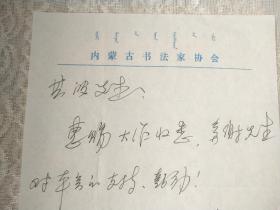 内蒙古书法家协会
先生：
惠赐大作收悉，多谢先生
对本会的支持、鼓励！